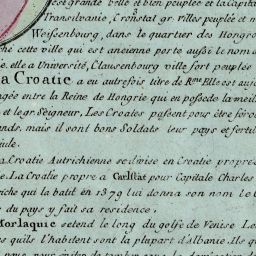 est grande belle et bien peuplée et la Capita
Transilvanie, Cronstat gr. villes peuplée et m
Weisenbourg, dans le quartier des Hongro
che cette ville qui est ancienne porte aussi le nom d
e. elle a Université, Clausenbourg ville fort peuplée
La Croatie a eu autrefois titre de Rme Elle est auj
agée entre la Reine de Hongrie qui en possede la meil
et le gr Seigneur, Les Croates passent pour être féroc
nds, mais ils sont bons Soldats leur pays et fertil
La Croatie Autrichienne se divise en Croatie propre
e. La Croatie propre a Carlstat pour Capitale Charles
riche qui la batit en 1379 lui donna son nom le C
du pays y fait sa residence.
Morlaquie setend le long du golfe de Venise Le
es quils l'habitent sont la plupart d'Albanie. Ils qu